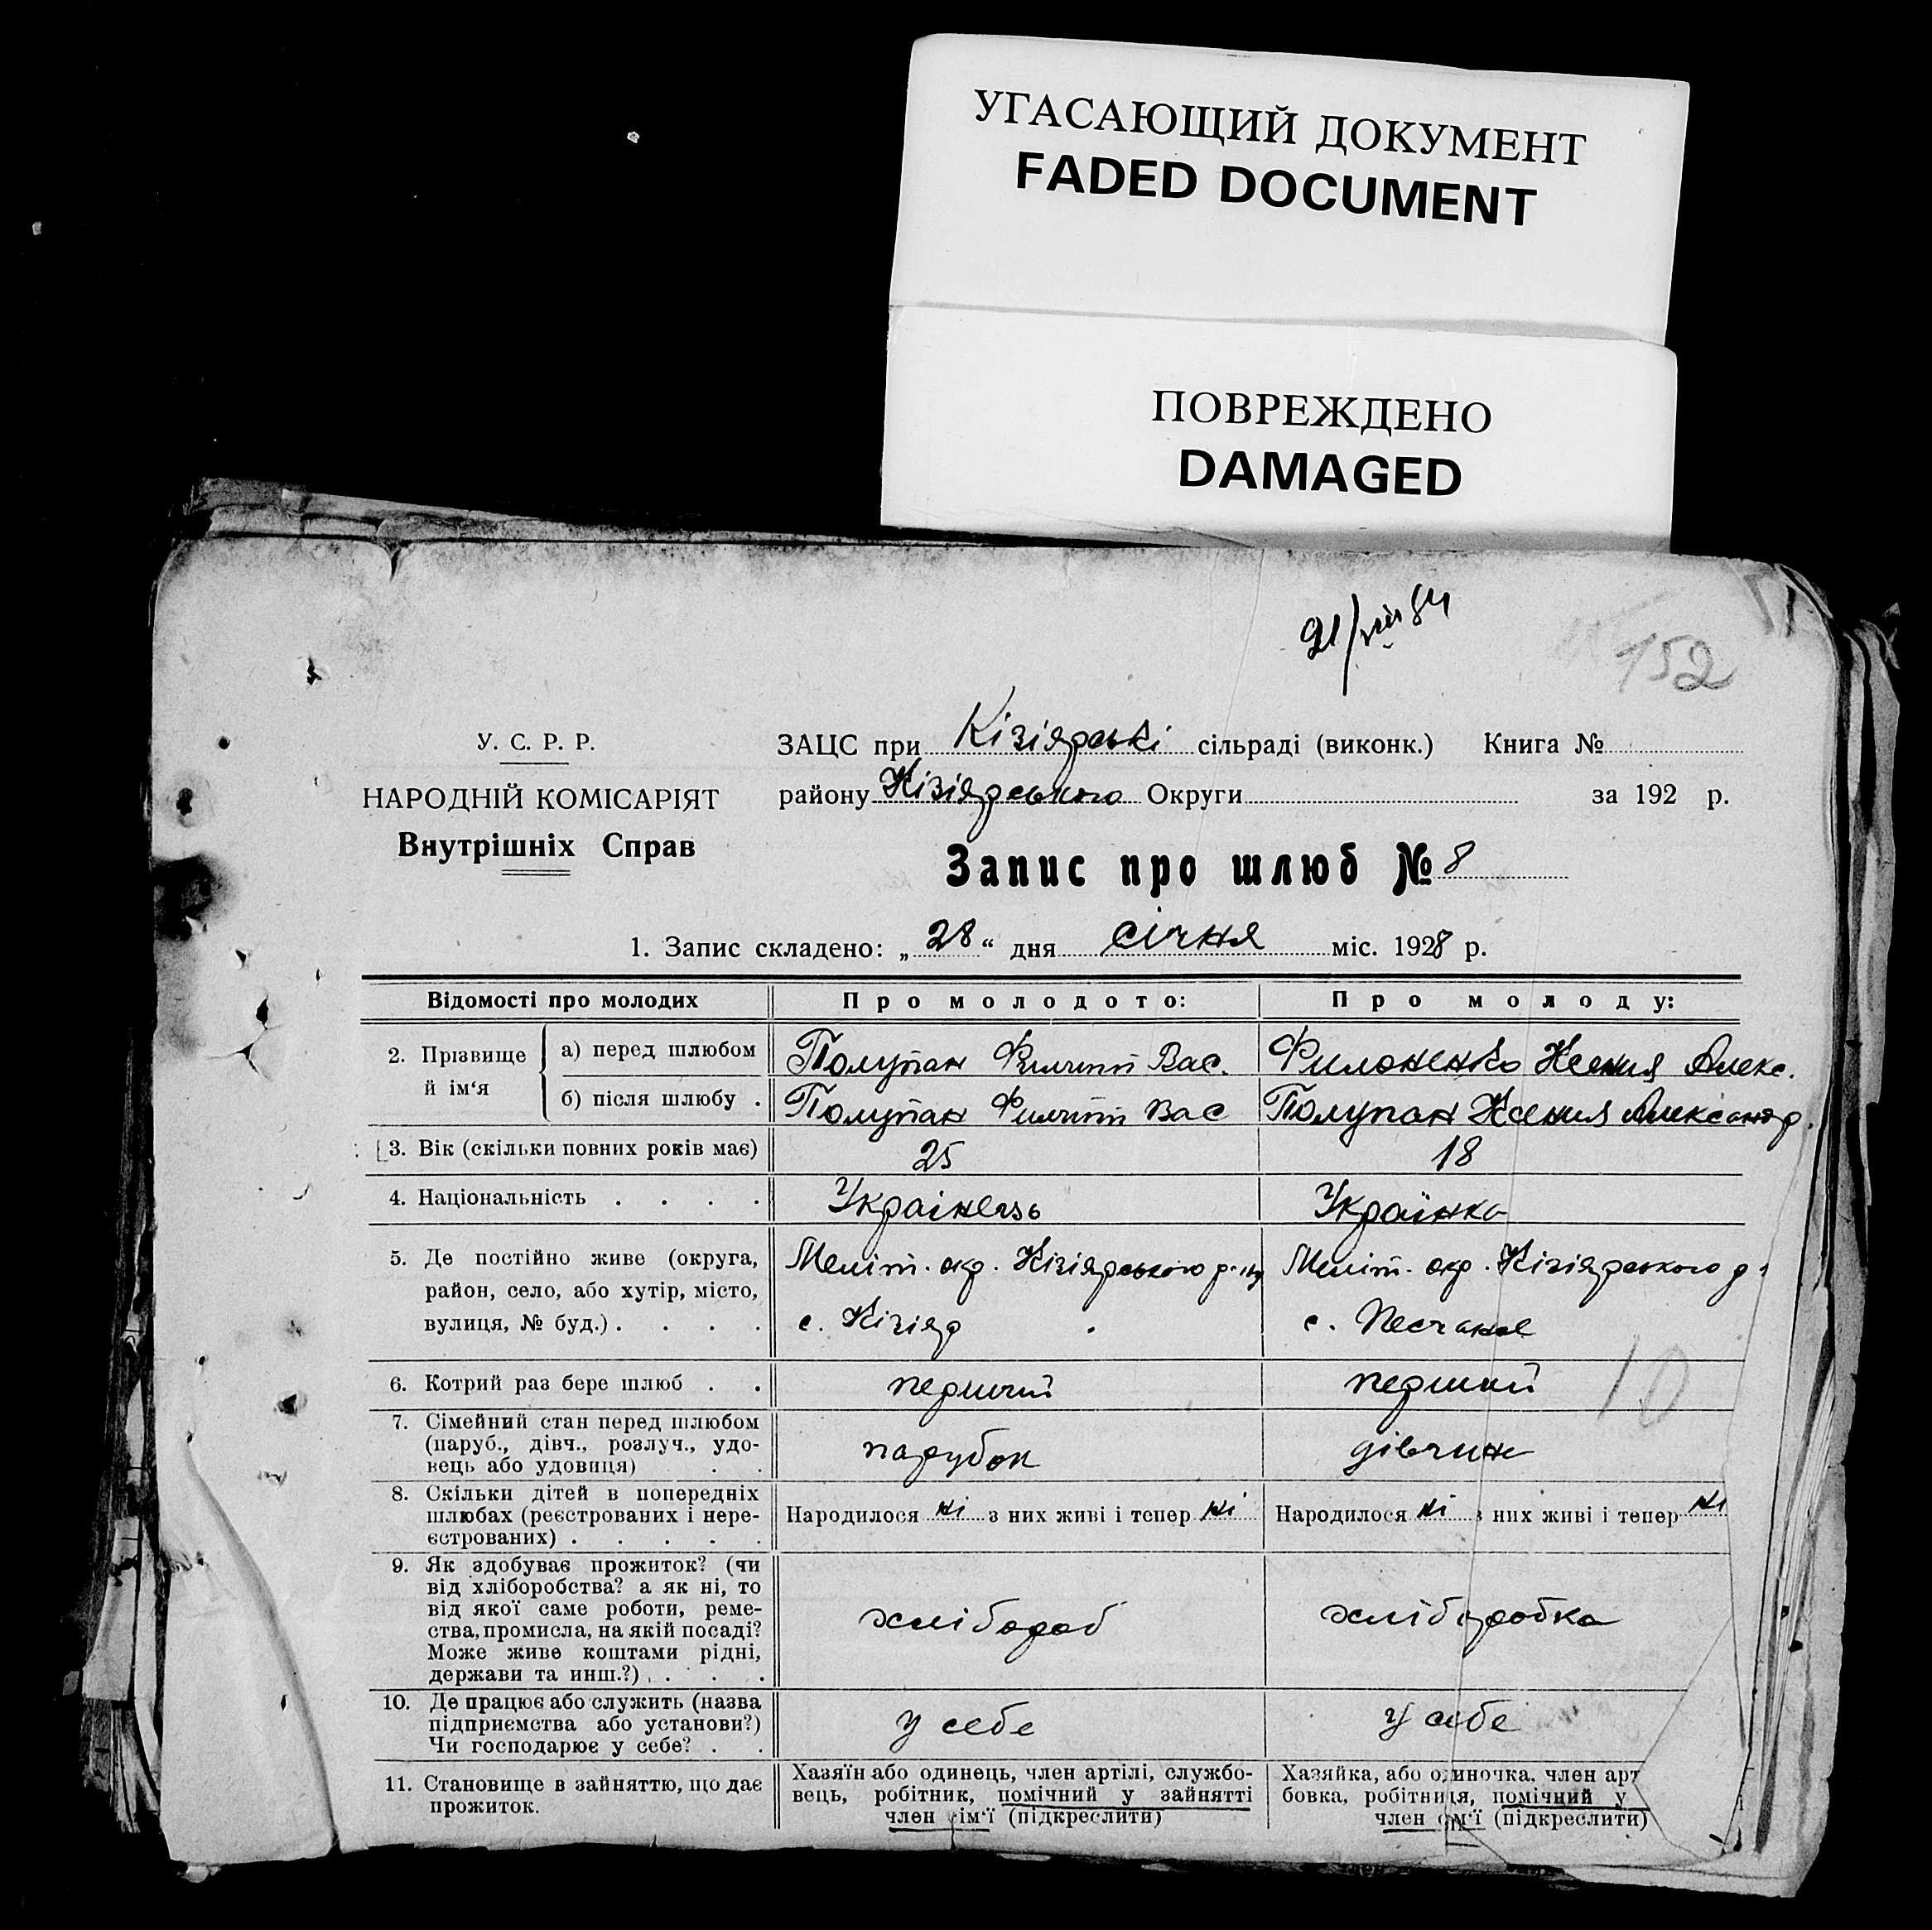 УГАСАЮЩИЙ ДОКУМЕНТ
FADED DOCUMENT
ПОВРЕЖДЕНО
DAMAGED
21/VIII 84
152
У. С. Р. Р.
НАРОДНІЙ КОМІСАРІЯТ
Внутрішніх Справ
ЗАЦС при Кізіярські сільраді (виконк.) Книга №
району Кізіярського Округи за 192 р.
Запис про шлюб № 8
1. Запис складено: „28“ дня січня міс. 1928 р.
Відомості про молодих
Про молодого:
Про молоду:
2. Прізвище й ім‘я
а) перед шлюбом
Полупан Филипп Вас.
Филоненко Ксения Алекс.
б) після шлюбу .
Полупан Филипп Вас
Полупан Ксения Александр.
3. Вік (скільки повних років має)
25
18
4. Національність . . . .
Українець
Українка
5. Де постійно живе (округа,
район, село, або хутір, місто,
вулиця, № буд.) . . . .
Меліт. окр. Кізіярського р-ну
с. Кізіяр
Меліт. окр. Кізіярського р
с. Песчане
6. Котрий раз бере шлюб . .
перший
перший
10
7. Сімейний стан перед шлюбом
(паруб., дівч., розлуч., удо-
вець або удовиця) . .
парубок
дівчин
8. Скільки дітей в попередніх
шлюбах (реєстрованих і нере-
єстрованих) . . . . .
Народилося ні з них живі і тепер ні
Народилося ні з них живі і тепер ні
9. Як здобуває прожиток? (чи
від хліборобства? а як ні, то
від якої саме роботи, реме-
ства, промисла, на якій посаді?
Може живе коштами рідні,
держави та инш.?) . . .
хлібороб
хліборобка
10. Де працює або служить (назва
підприємства або установи?)
Чи господарює у себе? . .
у себе
у себе
11. Становище в зайняттю, що дає
прожиток.
Хазяїн або одинець, член артілі, службо-
вець, робітник, помічний у зайнятті
член сім‘ї (підкреслити)
Хазяйка, або одиночка, член арт
бовка, робітниця, помічний у
член сім‘ї (підкреслити)